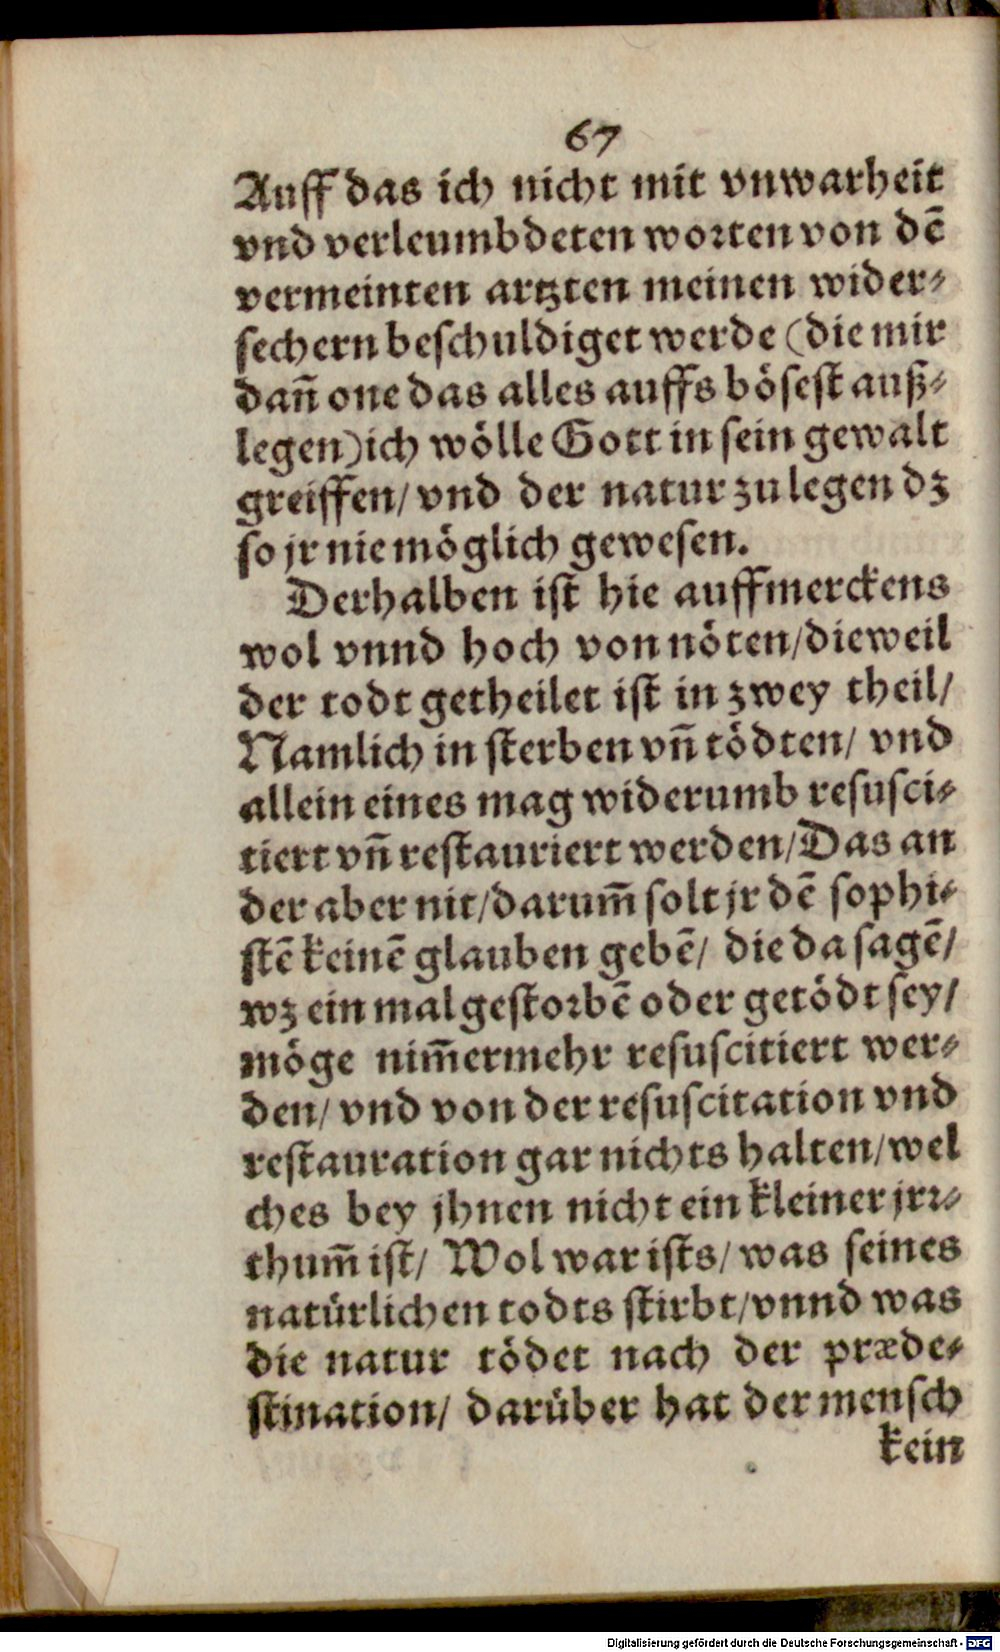 67
Auff das ich nicht mit vnwarheit
vnd verleumbdeten worten von dē
vermeinten artzten meinen wider⸗
sechern beschuldiget werde (die mir
dañ one das alles auffs bösest auß⸗
legen) ich wölle Gott in sein gewalt
greiffen/ vnd der natur zu legen dz
so jr nie möglich gewesen.
Derhalben ist hie auffmerckens
wol vnnd hoch von nöten/ dieweil
der todt getheilet ist in zwey theil/
Namlich in sterben vñ tödten/ vnd
allein eines mag widerumb resusci⸗
tiert vñ restauriert werden/ Das an
der aber nit/ darum̄ solt jr dē sophi⸗
stē keinē glauben gebē/ die da sagē/
wz ein mal gestorbē oder getödt sey/
möge nim̄ermehr resuscitiert wer⸗
den/ vnd von der resuscitation vnd
restauration gar nichts halten/ wel
ches bey jhnen nicht ein kleiner jrr⸗
thum̄ ist/ Wol war ists/ was seines
natürlichen todts stirbt/ vnnd was
die natur tödet nach der præde⸗
stination/ darüber hat der mensch
kein
Digitalisierung gefördert durch die Deutsche Forschungsgemeinschaft - DFG